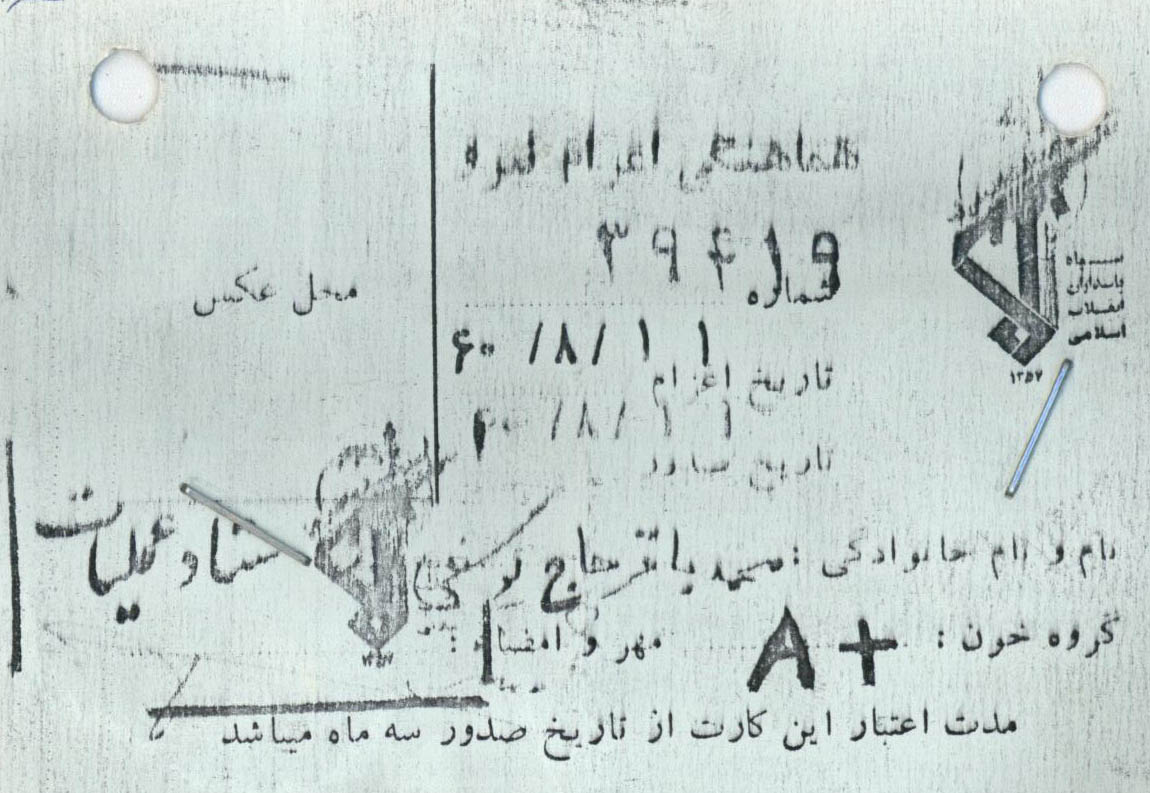 هماهنگی اعزام نیرو
۳۹۴۱۹
شماره
سپاه
پاسداران
انقلاب
اسلامی
۱۳۵۷
محل عکس
۶۰/۸/۱۱
تاریخ اعزام
۶۰/۸/۱۱
تاریخ صدور
نام و نام خانوادگی : محمد باقر حاج
ستاد عملیات
گروه خون : A+
مهر و امضاء :
۱۳۵۷
مدت اعتبار این کارت از تاریخ صدور سه ماه میباشد